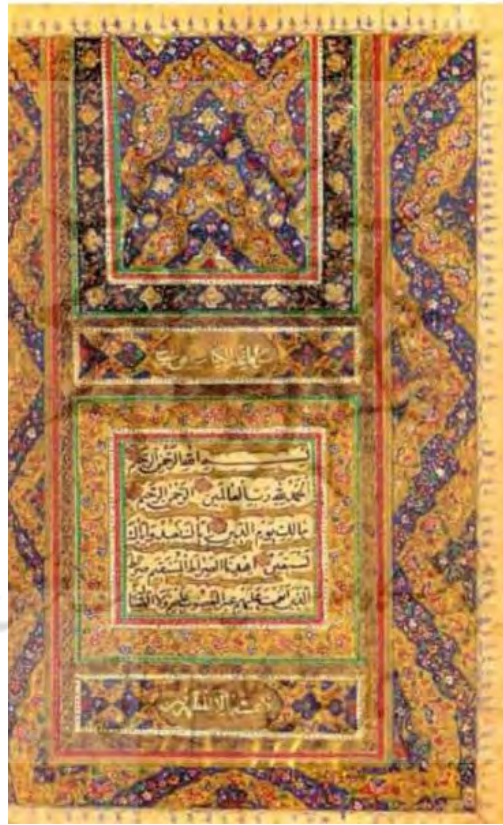 الكتاب
بسم الله الرحمن الرحيم
الحمد لله رب العالمين الرحمن الرحيم
مالك يوم الدين اياك نعبد واياك
نستعين اهدنا الصراط المستقيم صراط
الذين انعمت عليهم غير المغضوب عليهم ولا الضا
الا المطهرون